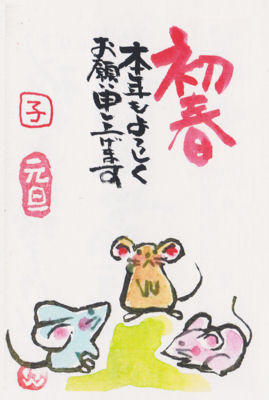 初春
本年もよろしく
お願い申し上げます
子
元旦